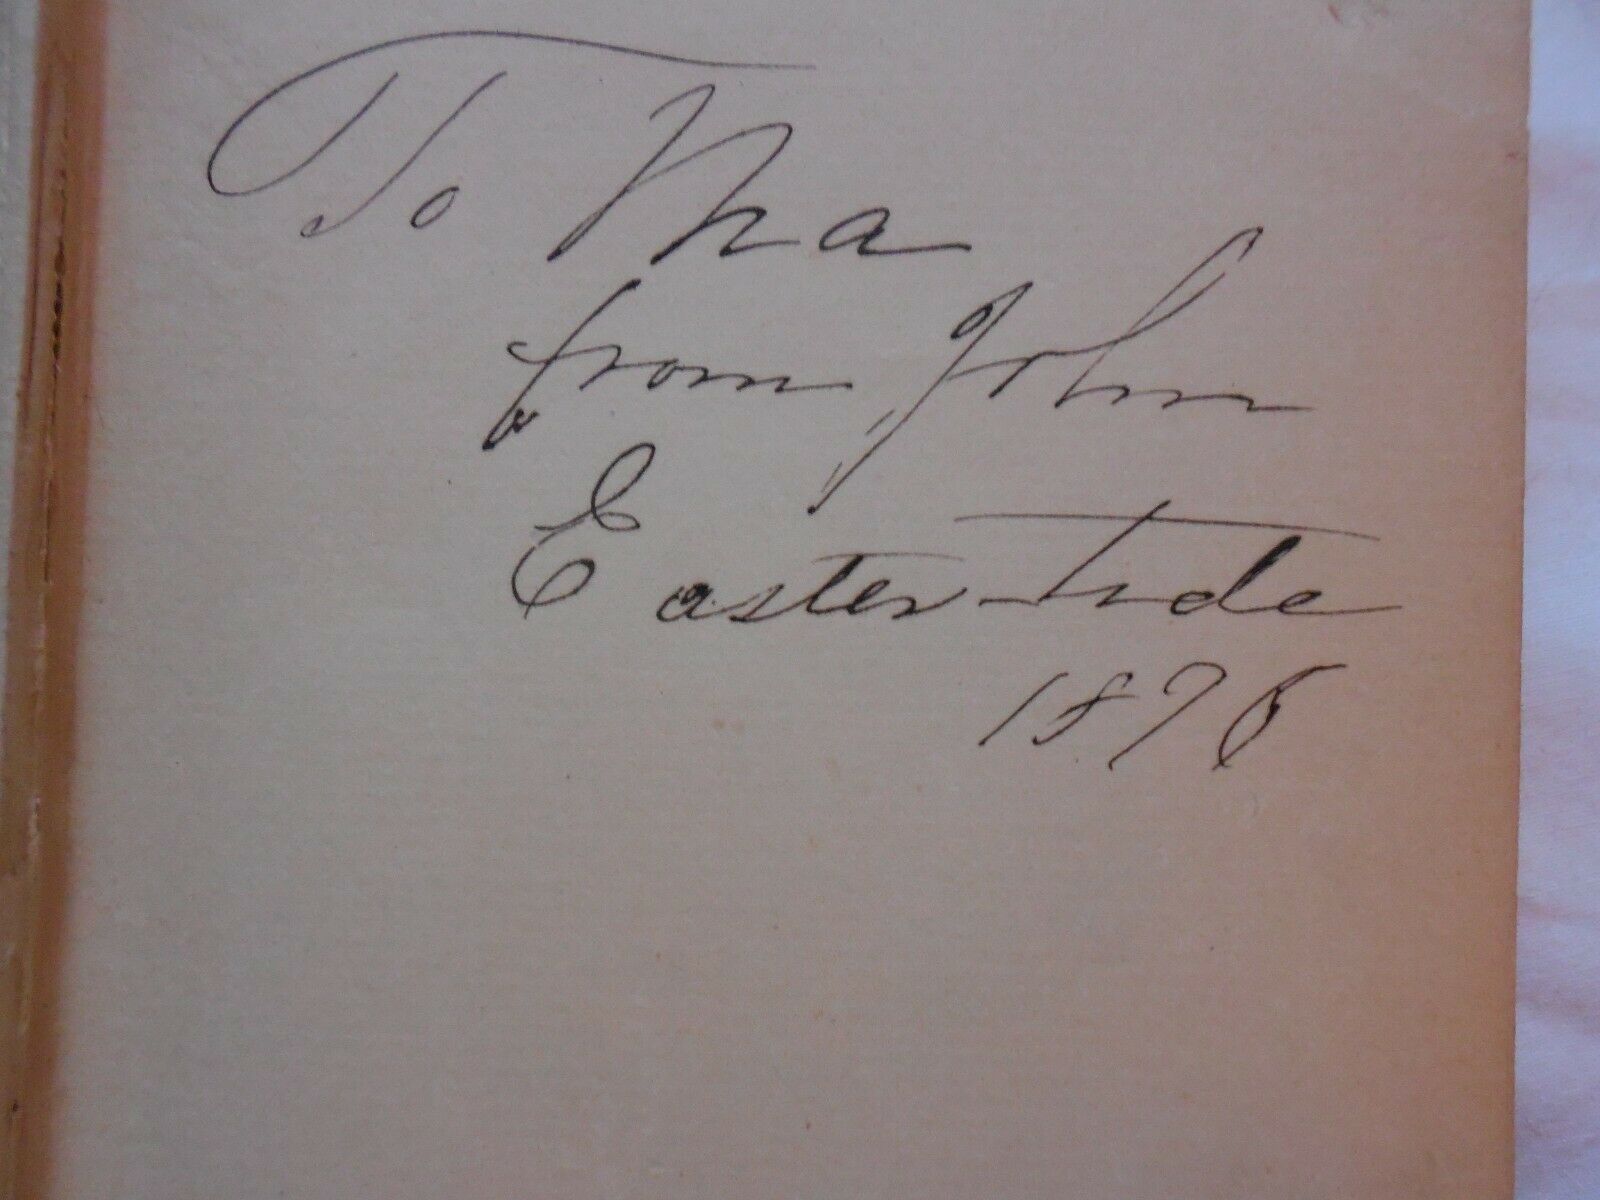 To Ma
from John
Easter-tide
1876